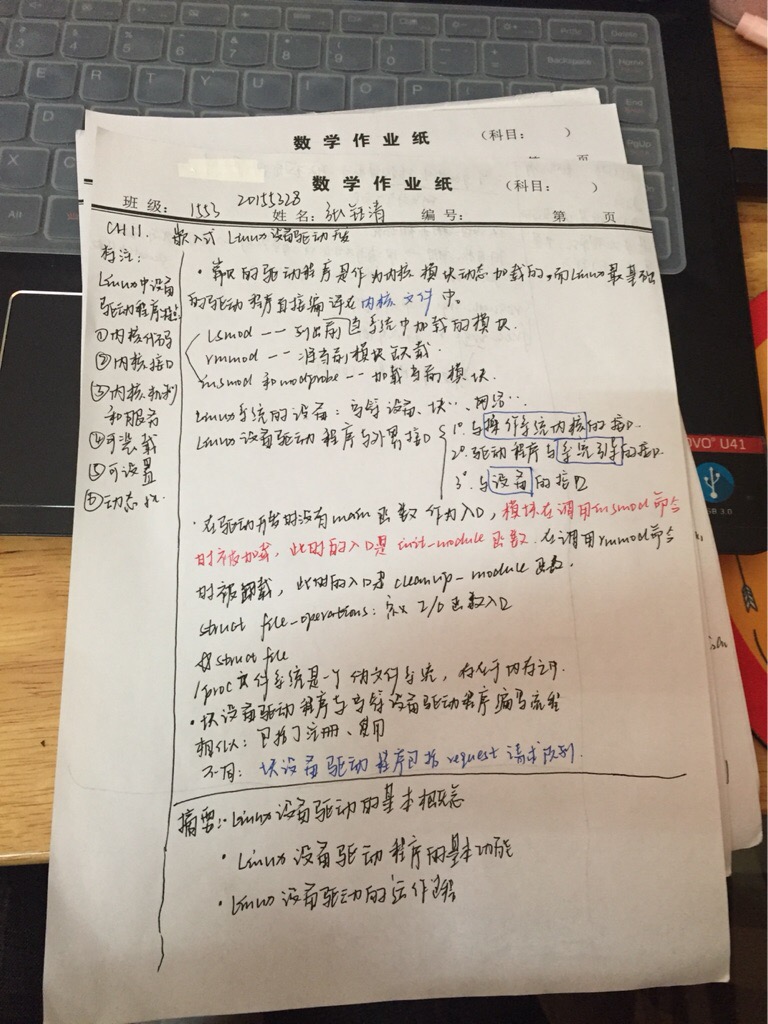 数学作业纸 （科目： ）
数学作业纸 （科目： ）
班级： 1553 20155328 姓名：张钰清 编号： 第 页
CH11. 嵌入式 Linux设备驱动开发
标注：
Linux中设备
驱动程序
①内核代码
②内核接口
③内核机制
和服务
④可装载
⑤可设置
⑥动态性
·单独的驱动程序是作为内核模块动态加载的，而Linux最基础
的驱动程序直接编译在内核文件中。
lsmod -- 列出当前系统中加载的模块.
rmmod -- 将当前模块卸载.
insmod 和modprobe -- 加载当前模块.
Linux系统的设备：字符设备、块‥、网络‥.
Linux设备驱动程序与外界接口
1°.与操作系统内核的接口.
2°.驱动程序与系统引导的接口.
3°.与设备的接口
·在驱动开发时没有main函数作为入口，模块在调用insmod命令
时被加载，此时的入口是init-module函数.在调用rmmod命令
时被卸载，此时的入口是cleanup-module函数.
struct file-operations：定义I/O函数入口
struct file
/proc文件系统是一个伪文件系统，存在于内存之中.
·块设备驱动程序与字符设备驱动程序编写流程
相似：包括了注册、使用
不同：块设备驱动程序包括request请求队列.
摘要：·Linux设备驱动的基本概念
·Linux设备驱动程序的基本功能
·Linux设备驱动的运作过程
Backspace
Home
End
PgUp
Alt
Delete
PrtSc
OVO U41
3.0